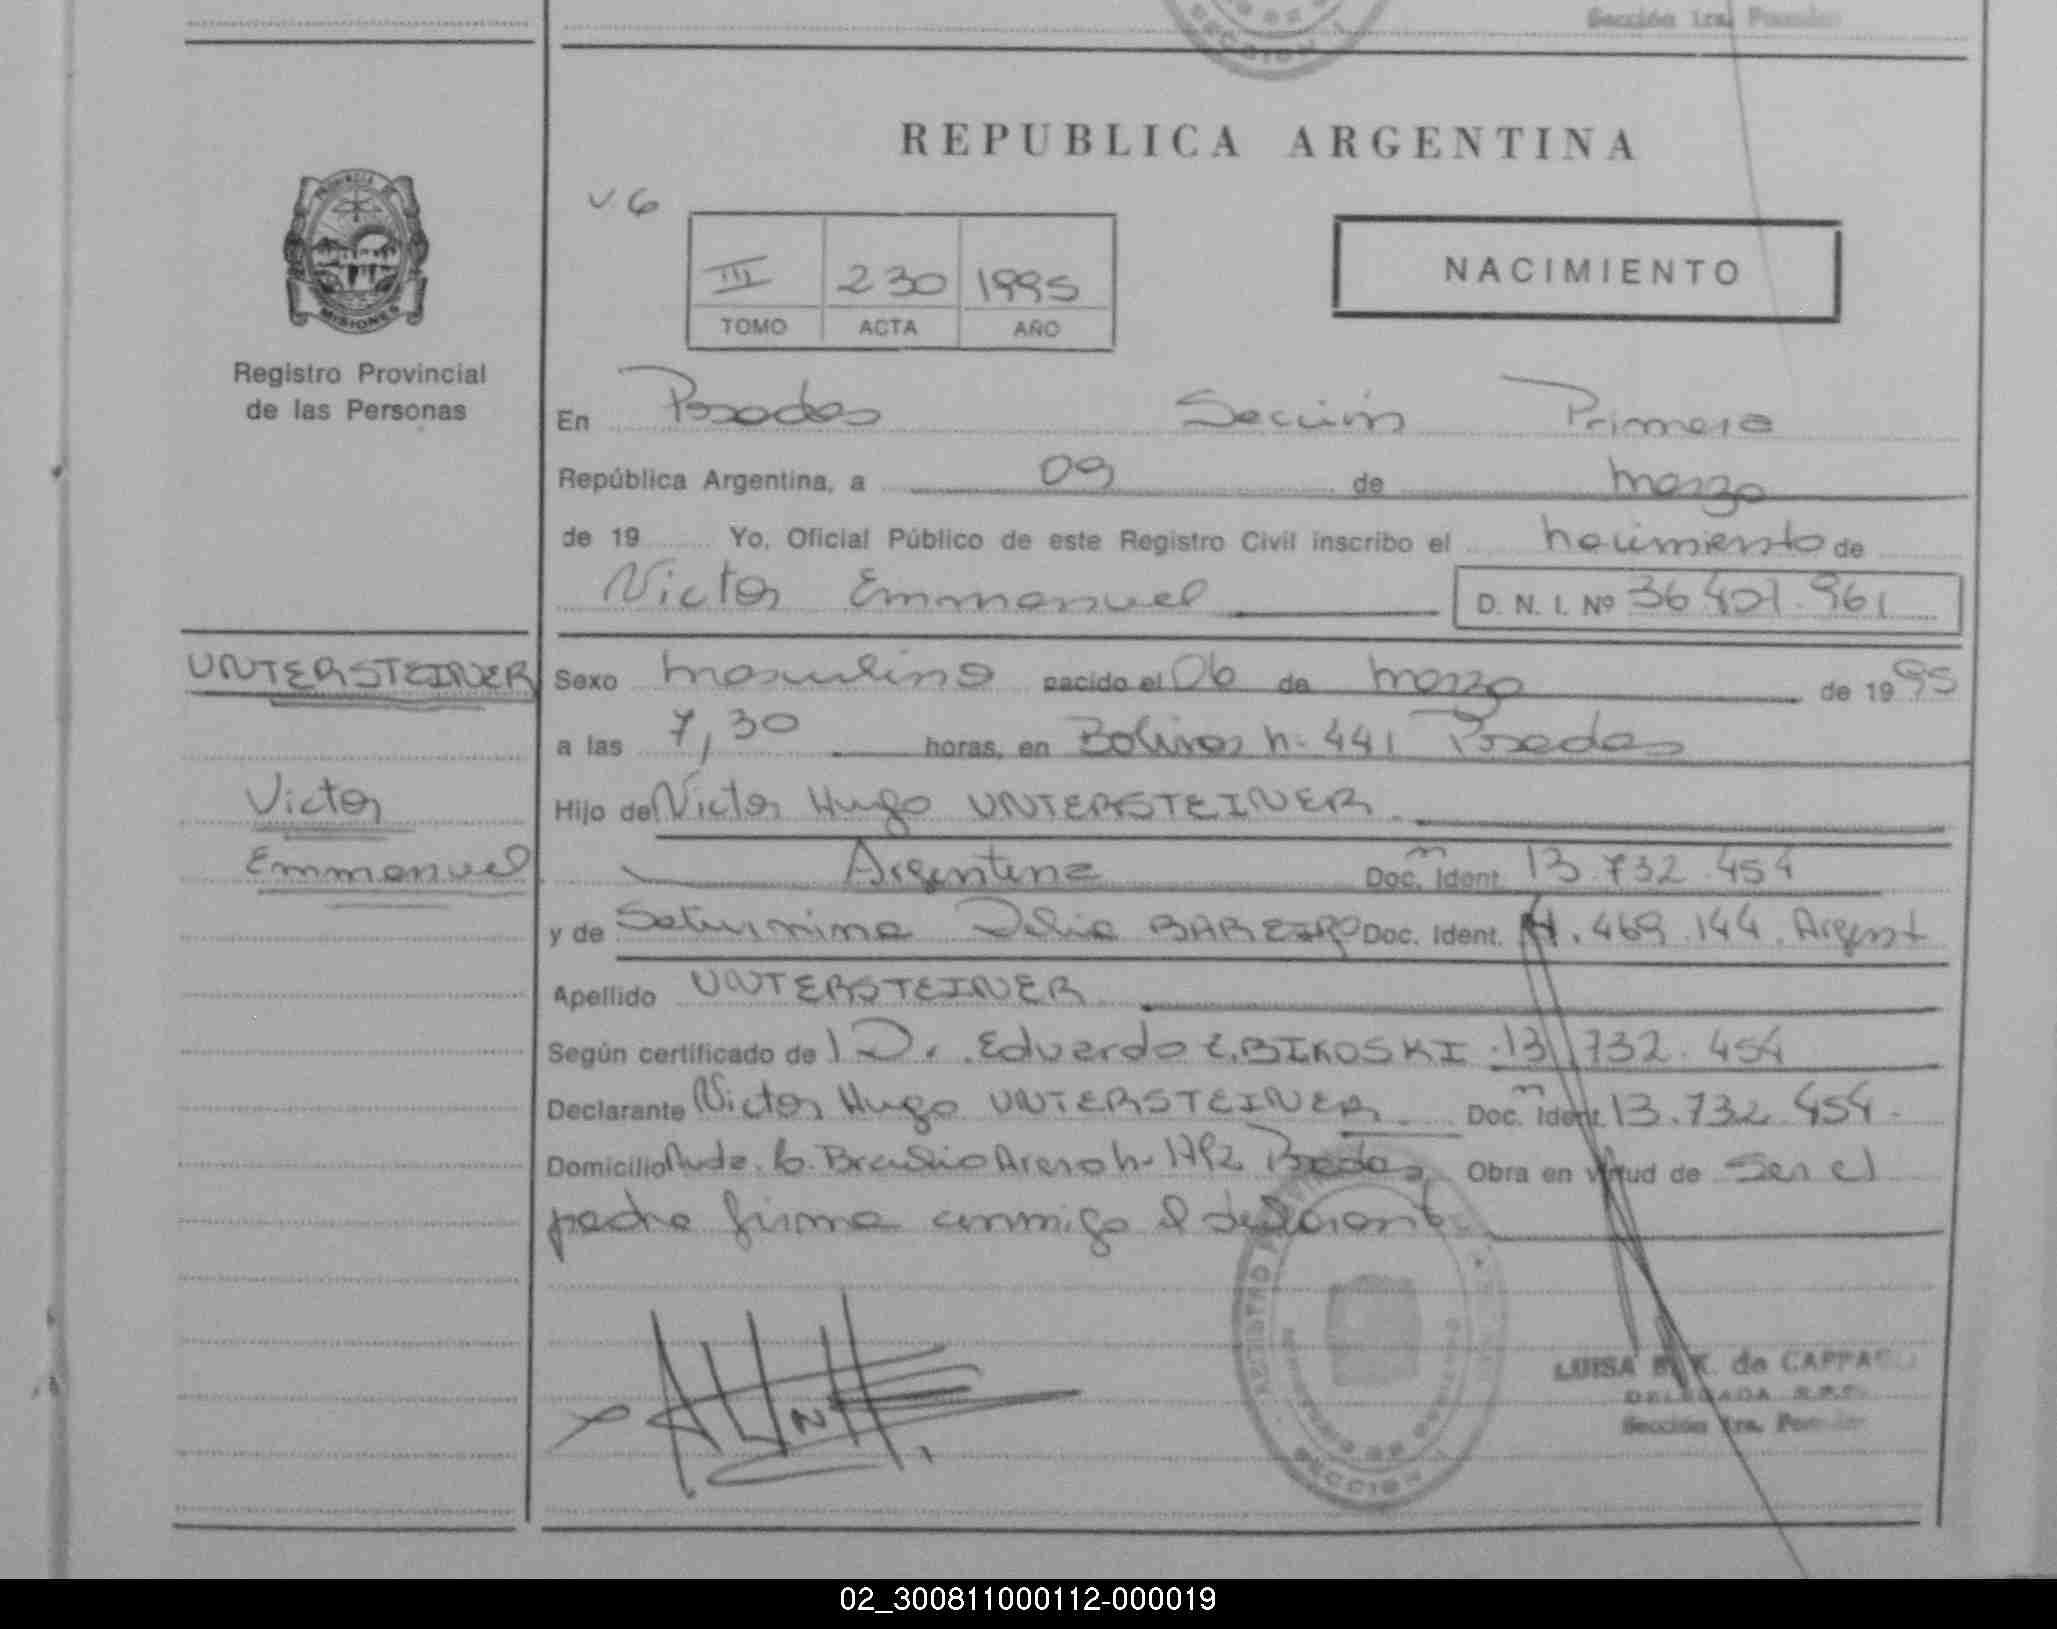 Sección 1ra. Posadas
SECCION 1
REPUBLICA ARGENTINA
PROVINCIA DE
MISIONES
Registro Provincial
de las Personas
v 6
III 230 1995
TOMO ACTA AÑO
NACIMIENTO
En Posadas Sección Primera
República Argentina, a 09 de marzo
de 19 Yo, Oficial Público de este Registro Civil inscribo el nacimiento de
Victor Emmanuel D. N. I. Nº 36.401.961
UNTERSTEINER
Victor
Emmanuel
Sexo masculino nacido el 06 de marzo de 1995
a las 7,30 horas, en Bolivar n. 441 Posadas
Hijo de Victor Hugo UNTERSTEINER
Argentina Doc. Ident. m 13.732.454
y de Saturnina Delia BAREIRO Doc. Ident. .469.144. Argent
Apellido UNTERSTEINER
Según certificado de Dr. Eduardo BIKOSKI 13.732.454
Declarante Victor Hugo UNTERSTEINER Doc. Ident. m 13.732.454.
Domicilio Avda. Braulio Areco n. Posadas Obra en virtud de Ser el
padre firma conmigo el declarante
REGISTRO PROVINCIAL
MINISTERIO DE GOBIERNO
SECCION 1
LUISA de CAPPA
DELEGADA R.P.P.
Sección 1ra. Posadas
02_300811000112-000019